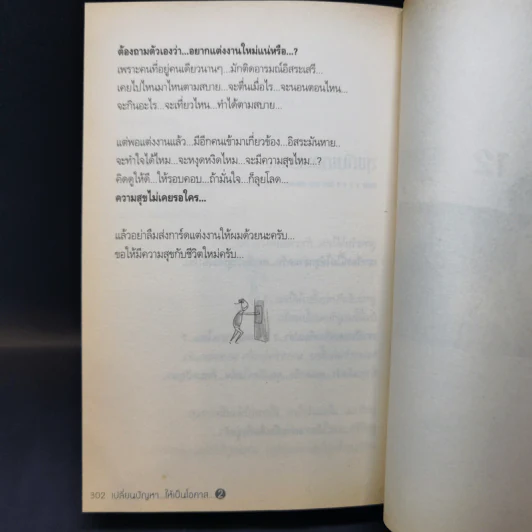 ต้องถามตัวเองว่า...อยากแต่งงานใหม่แน่หรือ...?
เพราะคนที่อยู่คนเดียวนานๆ...มักติดอารมณ์อิสระเสรี...
เคยไปไหนมาไหนตามสบาย...จะตื่นเมื่อไร...จะนอนตอนไหน...
จะกินอะไร...จะเที่ยวไหน...ทำได้ตามสบาย...
แต่พอแต่งงานแล้ว...มีอีกคนเข้ามาเกี่ยวข้อง...อิสระมันหาย...
จะทำใจได้ไหม...จะหงุดหงิดไหม...จะมีความสุขไหม...?
คิดดูให้ดี...ให้รอบคอบ...ถ้ามั่นใจ...ก็ลุยโลด...
ความสุขไม่เคยรอใคร...
แล้วอย่าลืมส่งการ์ดแต่งงานให้ผมด้วยนะครับ...
ขอให้มีความสุขกับชีวิตใหม่ครับ...
302 เปลี่ยนปัญหา...ให้เป็นโอกาส...2